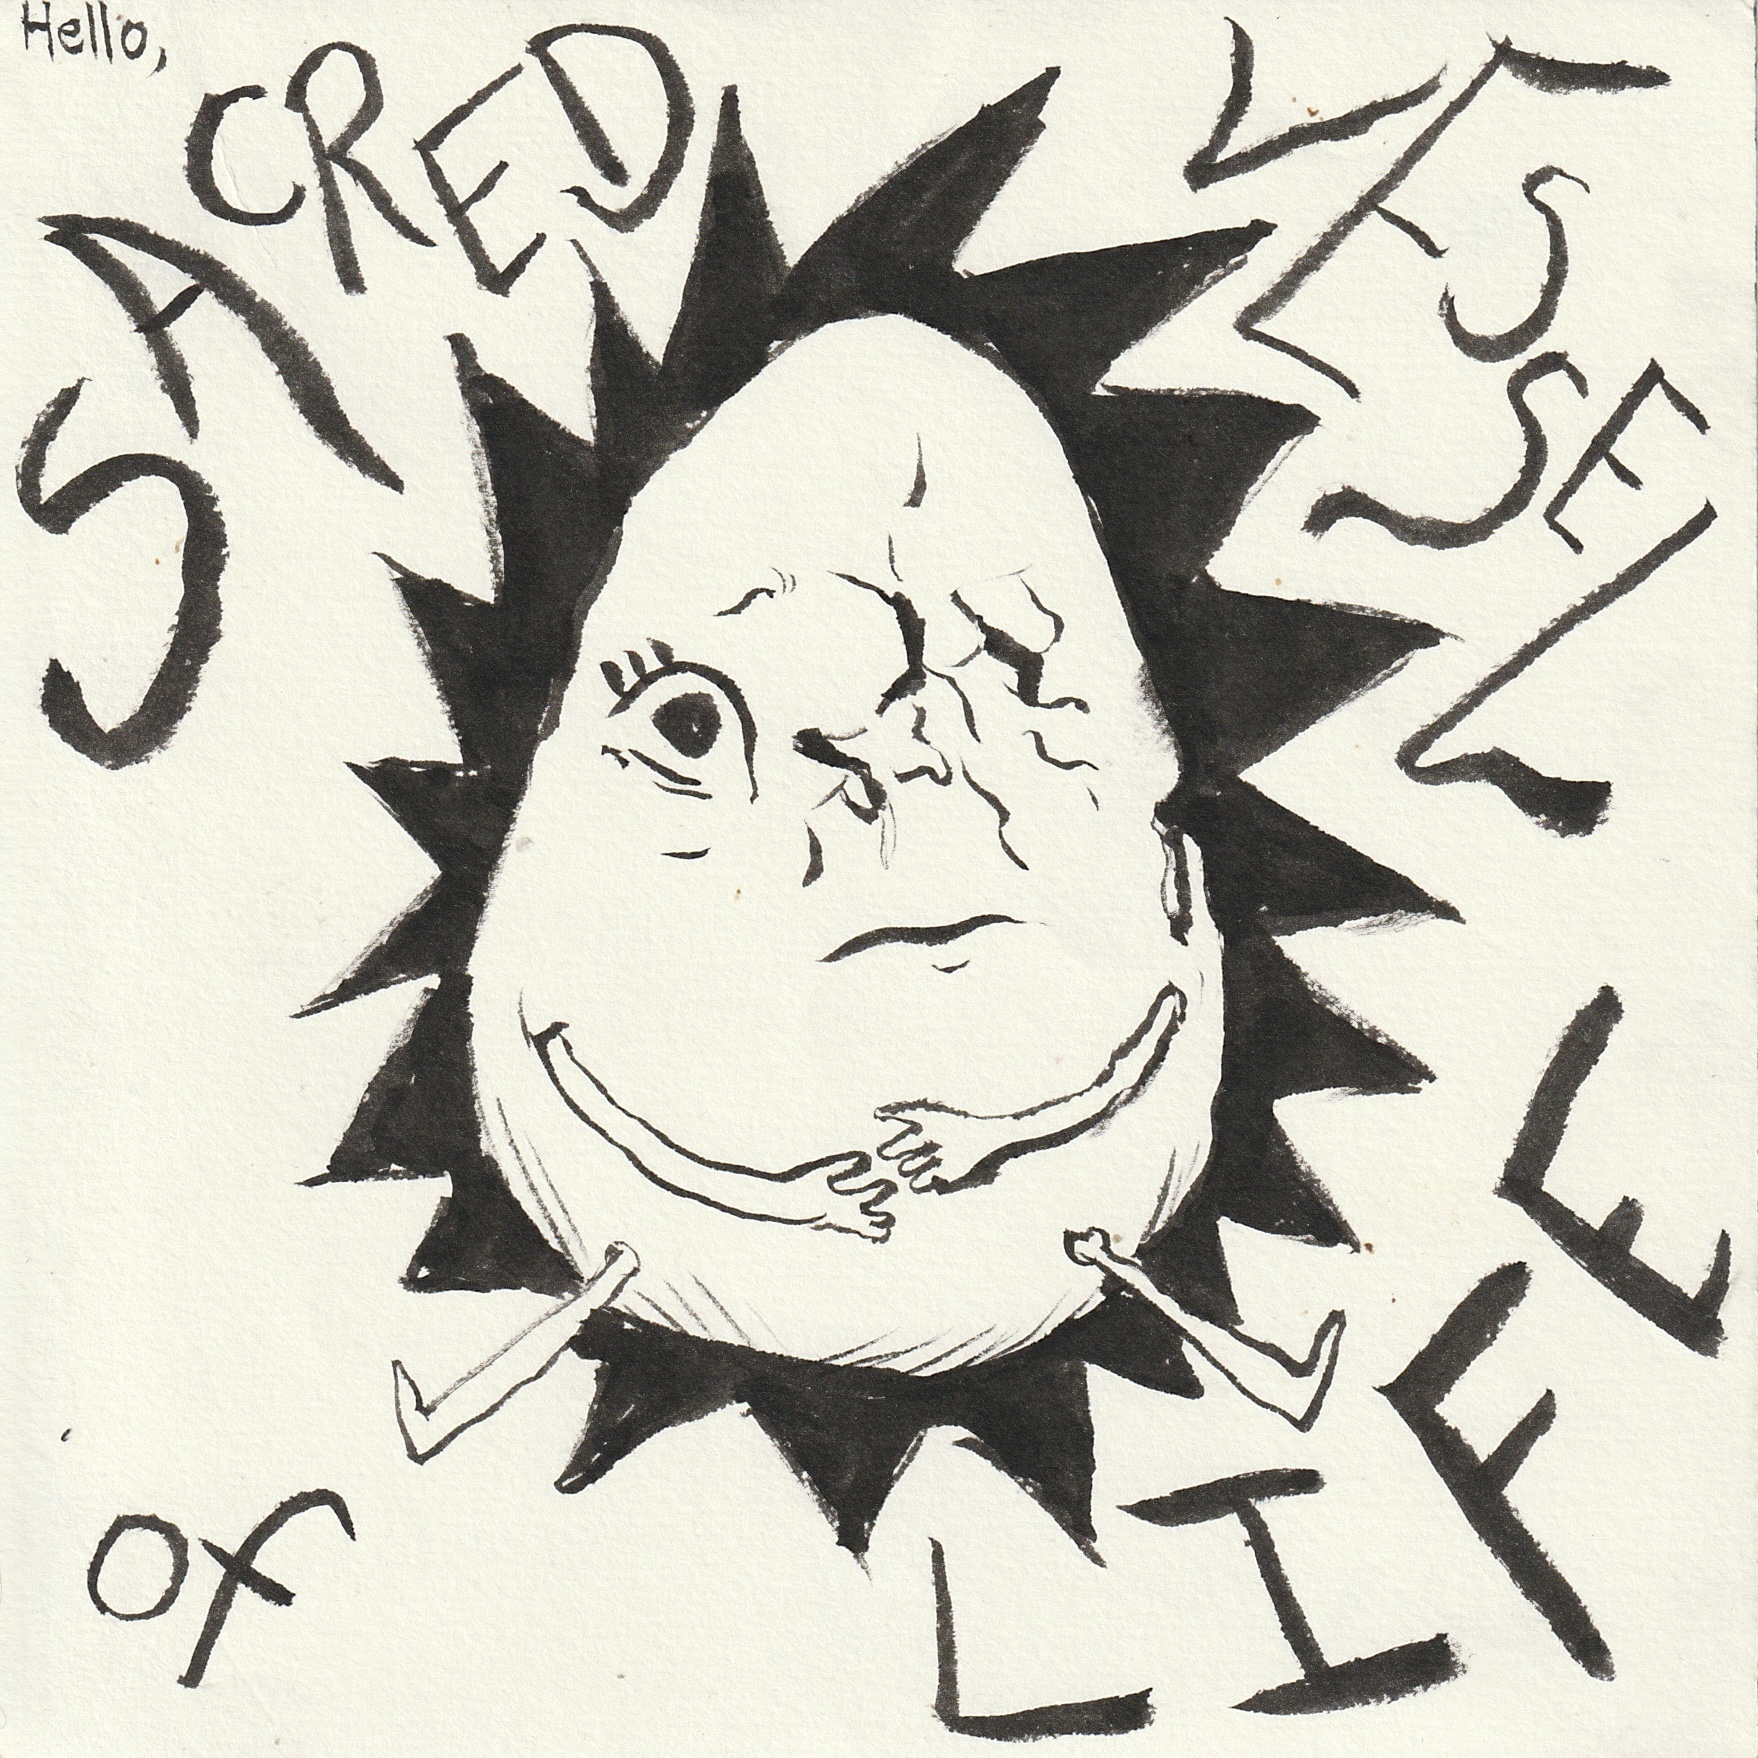 Hello,
SACRED
VESSEL
OF
LIFE